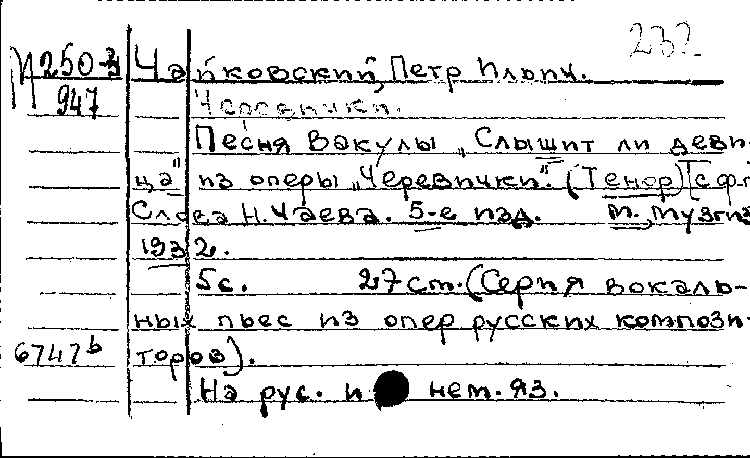 232
М250-3 Чайковский, Петр Ильич.
947 Черевички.
Песня Вакулы „Слышит ли деви-
ца" из оперы „Черевички". (Тенор) [с ф.-п
Слова Н. Чаева. 5-е изд. М., Музгиз
1932.
5с. 27 ст. (Серия вокаль-
ных пьес из опер русских компози-
6747ь торов).
На рус. и нем. яз.